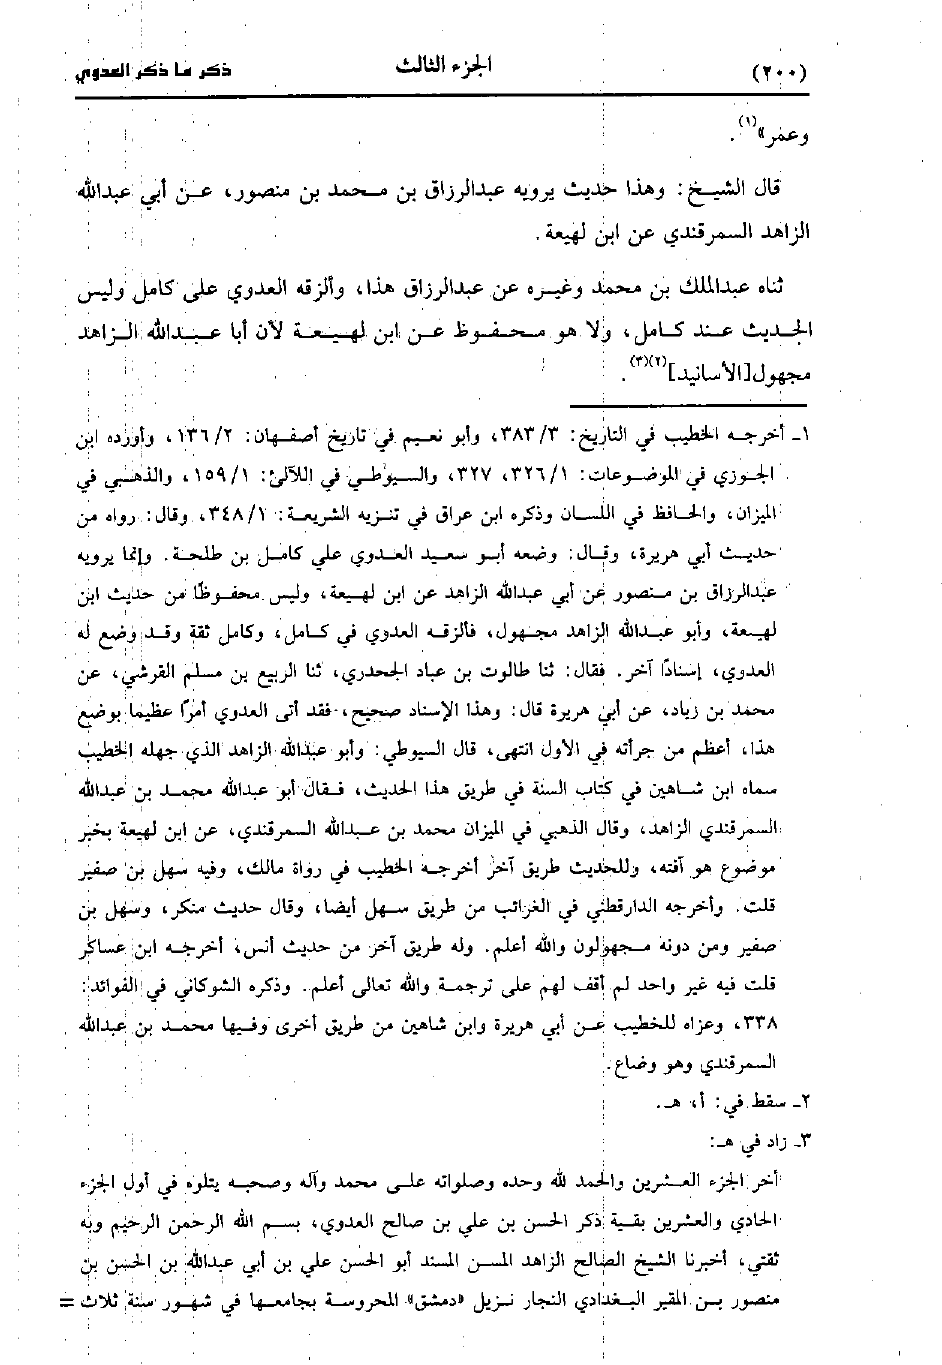 (٢٠٠) الجزء الثالث ذكر ما ذكر العدوي
وعمر»(١).
قال الشيخ: وهذا حديث يرويه عبدالرزاق بن محمد بن منصور، عن أبي عبدالله
الزاهد السمرقندي عن ابن لهيعة.
ثناه عبدالملك بن محمد وغيره عن عبدالرزاق هذا، وألزقه العدوي على كامل وليس
الحديث عند كامل، ولا هو محفوظ عن ابن لهيعة لأن أبا عبدالله الزاهد
مجهول[الأسانيد](٢)(٣).
١ـ أخرجه الخطيب في التاريخ: ٣/ ٣٨٣، وأبو نعيم في تاريخ أصفهان: ٢/ ١٣٦، وأورده ابن
الجوزي في الموضوعات: ١/ ٣٢٦، ٣٢٧، والسيوطي في اللآلئ: ١/ ١٥٩، والذهبي في
الميزان، والحافظ في اللسان وذكره ابن عراق في تنزيه الشريعة: ١/ ٣٤٨، وقال: رواه من
حديث أبي هريرة، وقال: وضعه أبو سعيد العدوي علي كامل بن طلحة. وإنما يرويه
عبدالرزاق بن منصور عن أبي عبدالله الزاهد عن ابن لهيعة، وليس محفوظًا من حديث ابن
لهيعة، وأبو عبدالله الزاهد مجهول، فألزقه العدوي في كامل، وكامل ثقة وقد وضع له
العدوي، إسنادًا آخر. فقال: ثنا طالوت بن عباد الجحدري، ثنا الربيع بن مسلم القرشي، عن
محمد بن زياد، عن أبي هريرة قال: وهذا الإسناد صحيح، فقد أتى العدوي أمرًا عظيما بوضع
هذا، أعظم من جرأته في الأول انتهى، قال السيوطي: وأبو عبدالله الزاهد الذي جهله الخطيب
سماه ابن شاهين في كتاب السنة في طريق هذا الحديث، فقال أبو عبدالله محمد بن عبدالله
السمرقندي الزاهد، وقال الذهبي في الميزان محمد بن عبدالله السمرقندي، عن ابن لهيعة بخبر
موضوع هو آفته، وللحديث طريق آخر أخرجه الخطيب في رواة مالك، وفيه سهل بن صقير
قلت. وأخرجه الدارقطني في الغرائب من طريق سهل أيضا، وقال حديث منكر، وسهل بن
صقير ومن دونه مجهولون والله أعلم. وله طريق آخر من حديث أنس، أخرجه ابن عساكر
قلت فيه غير واحد لم أقف لهم على ترجمة والله تعالى أعلم. وذكره الشوكاني في الفوائد:
٣٣٨، وعزاه للخطيب عن أبي هريرة وابن شاهين من طريق أخرى وفيها محمد بن عبدالله
السمرقندي وهو وضاع.
٢ـ سقط في: أ، هـ.
٣ـ زاد في هـ:
أخر الجزء العشرين والحمد لله وحده وصلواته على محمد وآله وصحبه يتلوه في أول الجزء
الحادي والعشرين بقية ذكر الحسن بن علي بن صالح العدوي، بسم الله الرحمن الرحيم وبه
ثقتي، أخبرنا الشيخ الصالح الزاهد المسن المسند أبو الحسن علي بن أبي عبدالله بن الحسن بن
منصور بن المقير البغدادي النجار نزيل «دمشق» المحروسة بجامعها في شهور سنة ثلاث =